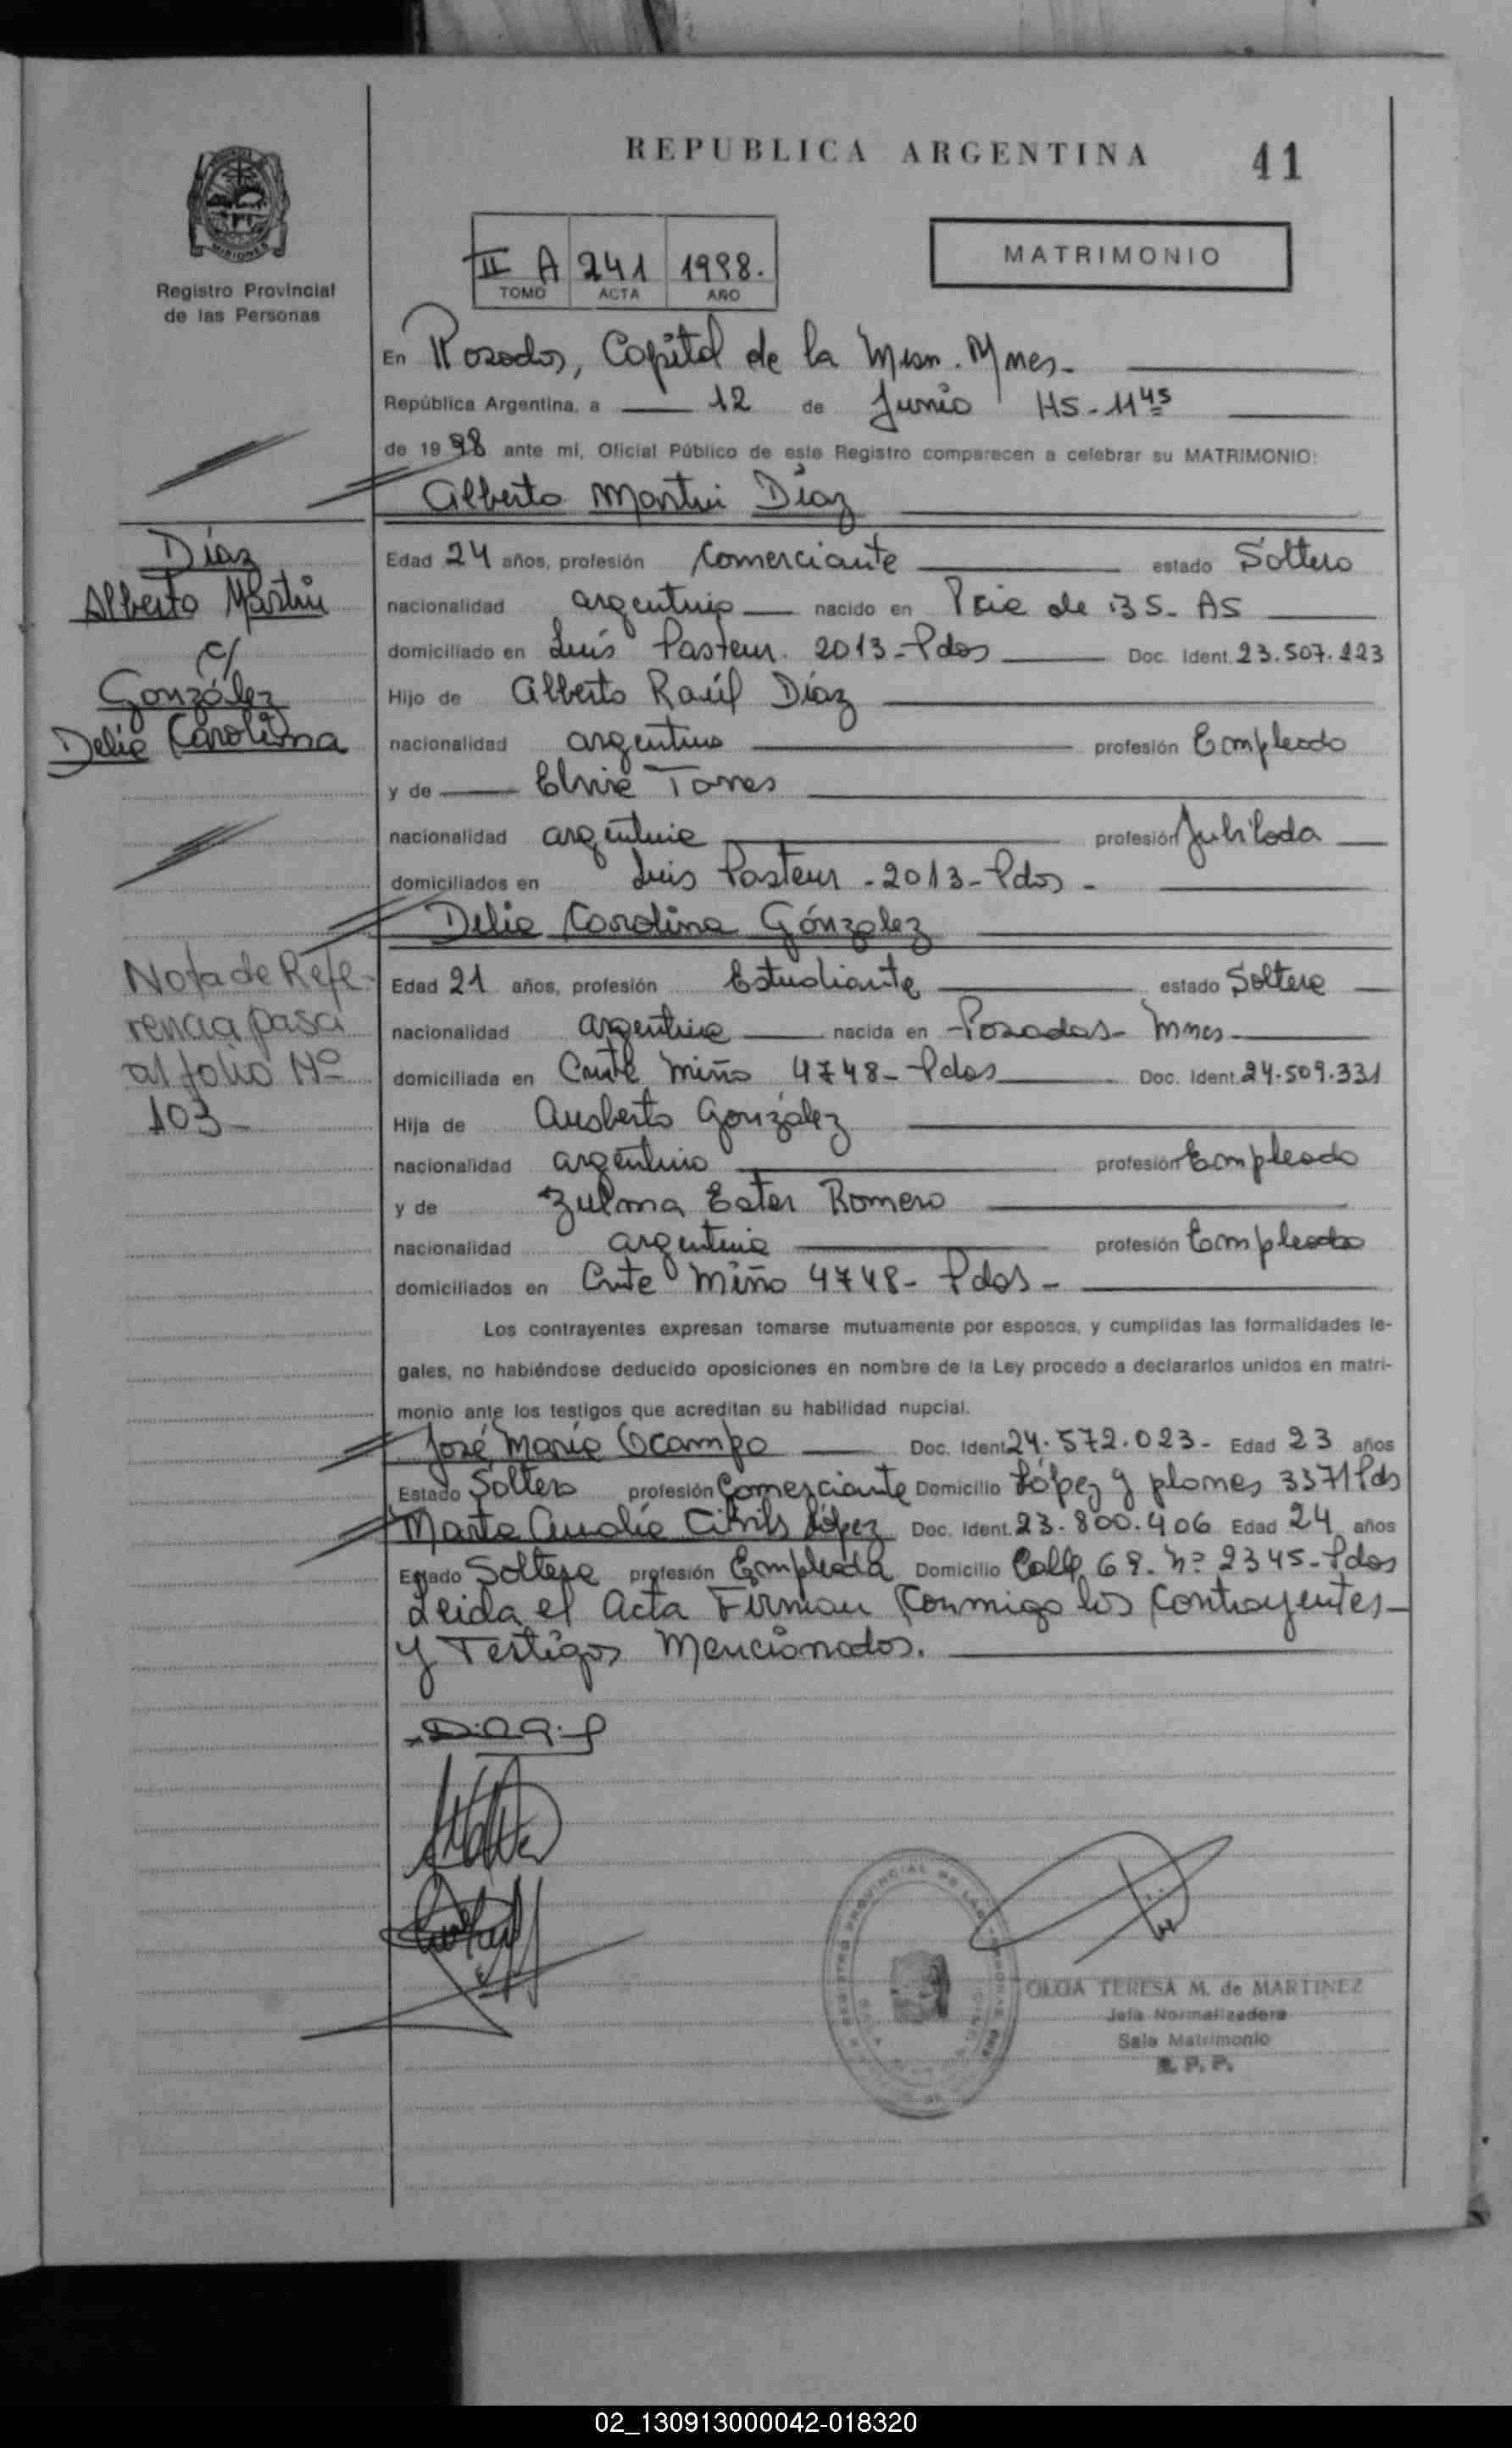 REPUBLICA ARGENTINA 41
MISIONES
Registro Provincial
de las Personas
II A 241 1998.
TOMO ACTA AÑO
MATRIMONIO
En Posadas, Capital de la Mnes.
República Argentina, a 12 de Junio HS-11 45
de 1998 ante mi, Oficial Público de este Registro comparecen a celebrar su MATRIMONIO:
Alberto Martin Díaz
Díaz
Alberto Martin
c/
González
Delia Carolina
Edad 24 años, profesión Comerciante estado Soltero
nacionalidad argentino nacido en Pcia de BS-AS
domiciliado en Luis Pasteur. 2013-Pdas Doc. Ident. 23.507.223
Hijo de Alberto Raúl Díaz
nacionalidad argentino profesión Empleado
y de Elvira Torres
nacionalidad argentina profesión Jubilada
domiciliados en Luis Pasteur - 2013-Pdas -
Delia Carolina Gónzalez
Nota de Refe-
rencia pasa
al folio Nº
103-
Edad 21 años, profesión Estudiante estado Soltera
nacionalidad argentina nacida en Posadas- Mnes
domiciliada en Cnte Miño 4748-Pdas Doc. Ident. 24.509.331
Hija de Ausberto González
nacionalidad argentino profesión Empleado
y de Zulma Ester Romero
nacionalidad argentina profesión Empleada
domiciliados en Cnte Miño 4748- Pdas -
Los contrayentes expresan tomarse mutuamente por esposos, y cumplidas las formalidades le-
gales, no habiéndose deducido oposiciones en nombre de la Ley procedo a declararlos unidos en matri-
monio ante los testigos que acreditan su habilidad nupcial.
José María Ocampo Doc. Ident. 24.572.023- Edad 23 años
Estado Soltero profesión Comerciante Domicilio López y planes 3371 Pds
Marta Analía López Doc. Ident. 23.800.406 Edad 24 años
Estado Soltera profesión Empleada Domicilio Calle 68. nº 2345-Pdas
Leida el Acta Firman Conmigo los Contrayentes-
y Testigos Mencionados.
REGISTRO PROVINCIAL DE LAS PERSONAS
OLGA TERESA M. de MARTINEZ
Jefa Normalizadora
Sala Matrimonio
R. P. P.
02_130913000042-018320